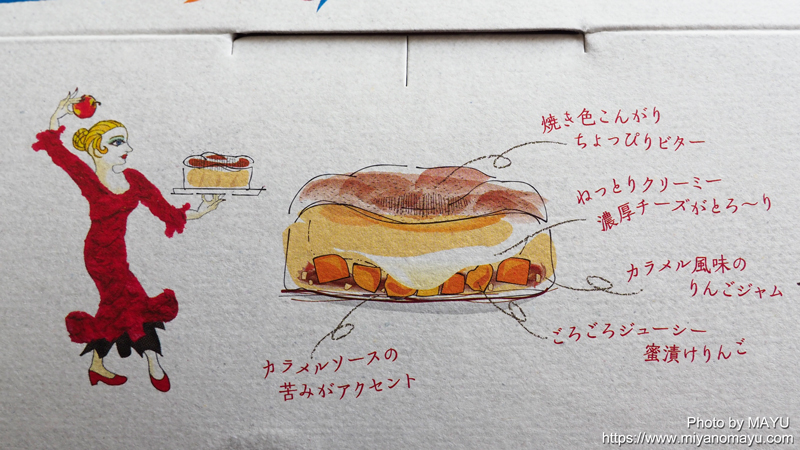 焼き色こんがり
ちょっぴりビター
ねっとりクリーミー
濃厚チーズがとろ〜り
カラメル風味の
りんごジャム
ごろごろジューシー
蜜漬けりんご
カラメルソースの
苦みがアクセント
Photo by MAYU
https://www.miyanomayu.com